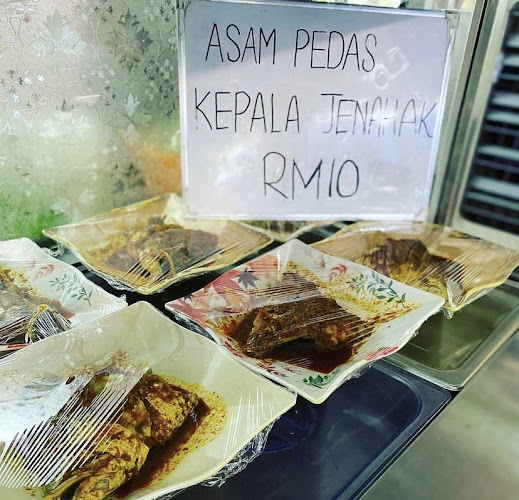 ASAM PEDAS
KEPALA JENAHAK
RM10